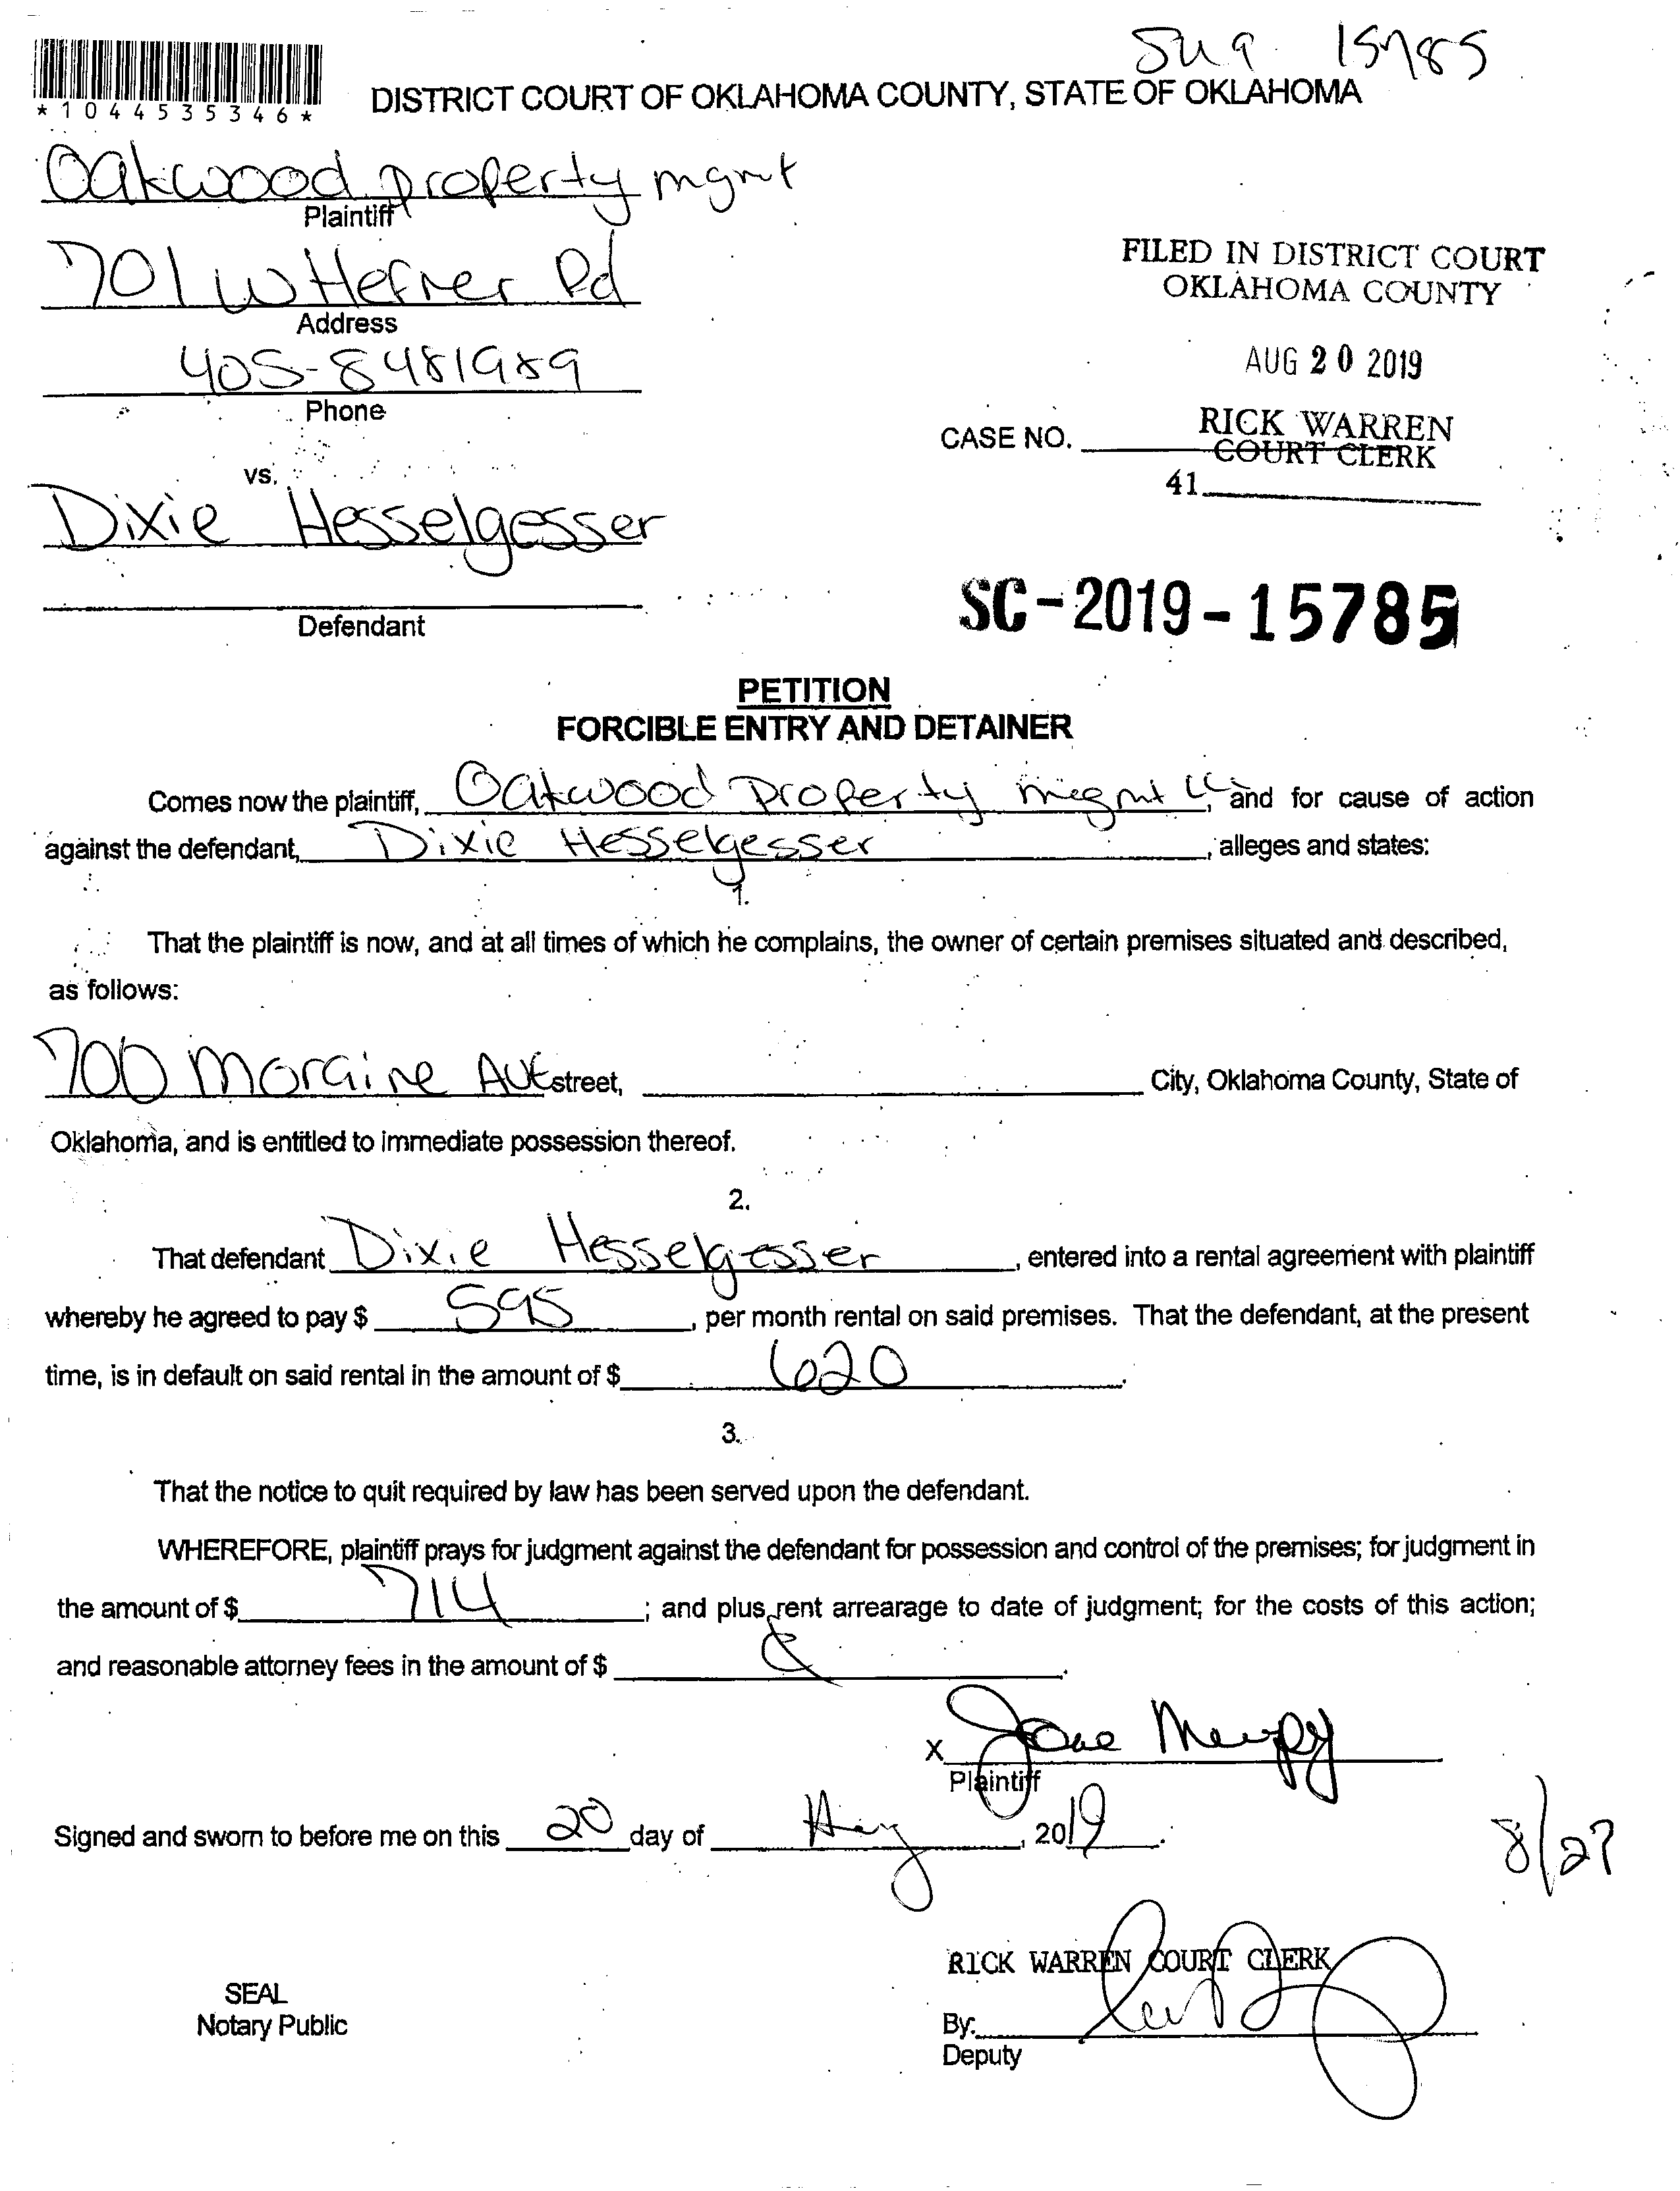 SU 9 15785
*1044535346*
DISTRICT COURT OF OKLAHOMA COUNTY, STATE OF OKLAHOMA
Oakwood property mgmt
Plaintiff
701 W Hefner Rd
Address
405-8481989
Phone
FILED IN DISTRICT COURT
OKLAHOMA COUNTY
AUG 20 2019
RICK WARREN
COURT CLERK
CASE NO.
41
vs.
Dixie Hesselgesser
Defendant
SC-2019-15785
PETITION
FORCIBLE ENTRY AND DETAINER
Comes now the plaintiff, Oakwood Property megmt LLC, and for cause of action
against the defendant, Dixie Hesselgesser, alleges and states:
1.
That the plaintiff is now, and at all times of which he complains, the owner of certain premises situated and described,
as follows:
700 Moraine Ave street, City, Oklahoma County, State of
Oklahoma, and is entitled to immediate possession thereof.
2.
That defendant Dixie Hesselgesser, entered into a rental agreement with plaintiff
whereby he agreed to pay $ 595, per month rental on said premises. That the defendant, at the present
time, is in default on said rental in the amount of $ 620.
3.
That the notice to quit required by law has been served upon the defendant.
WHEREFORE, plaintiff prays for judgment against the defendant for possession and control of the premises; for judgment in
the amount of $ 714; and plus rent arrearage to date of judgment; for the costs of this action;
and reasonable attorney fees in the amount of $.
X
Plaintiff
Signed and sworn to before me on this 20 day of Aug, 2019.
8/27
RICK WARREN COURT CLERK
SEAL
Notary Public
By:
Deputy